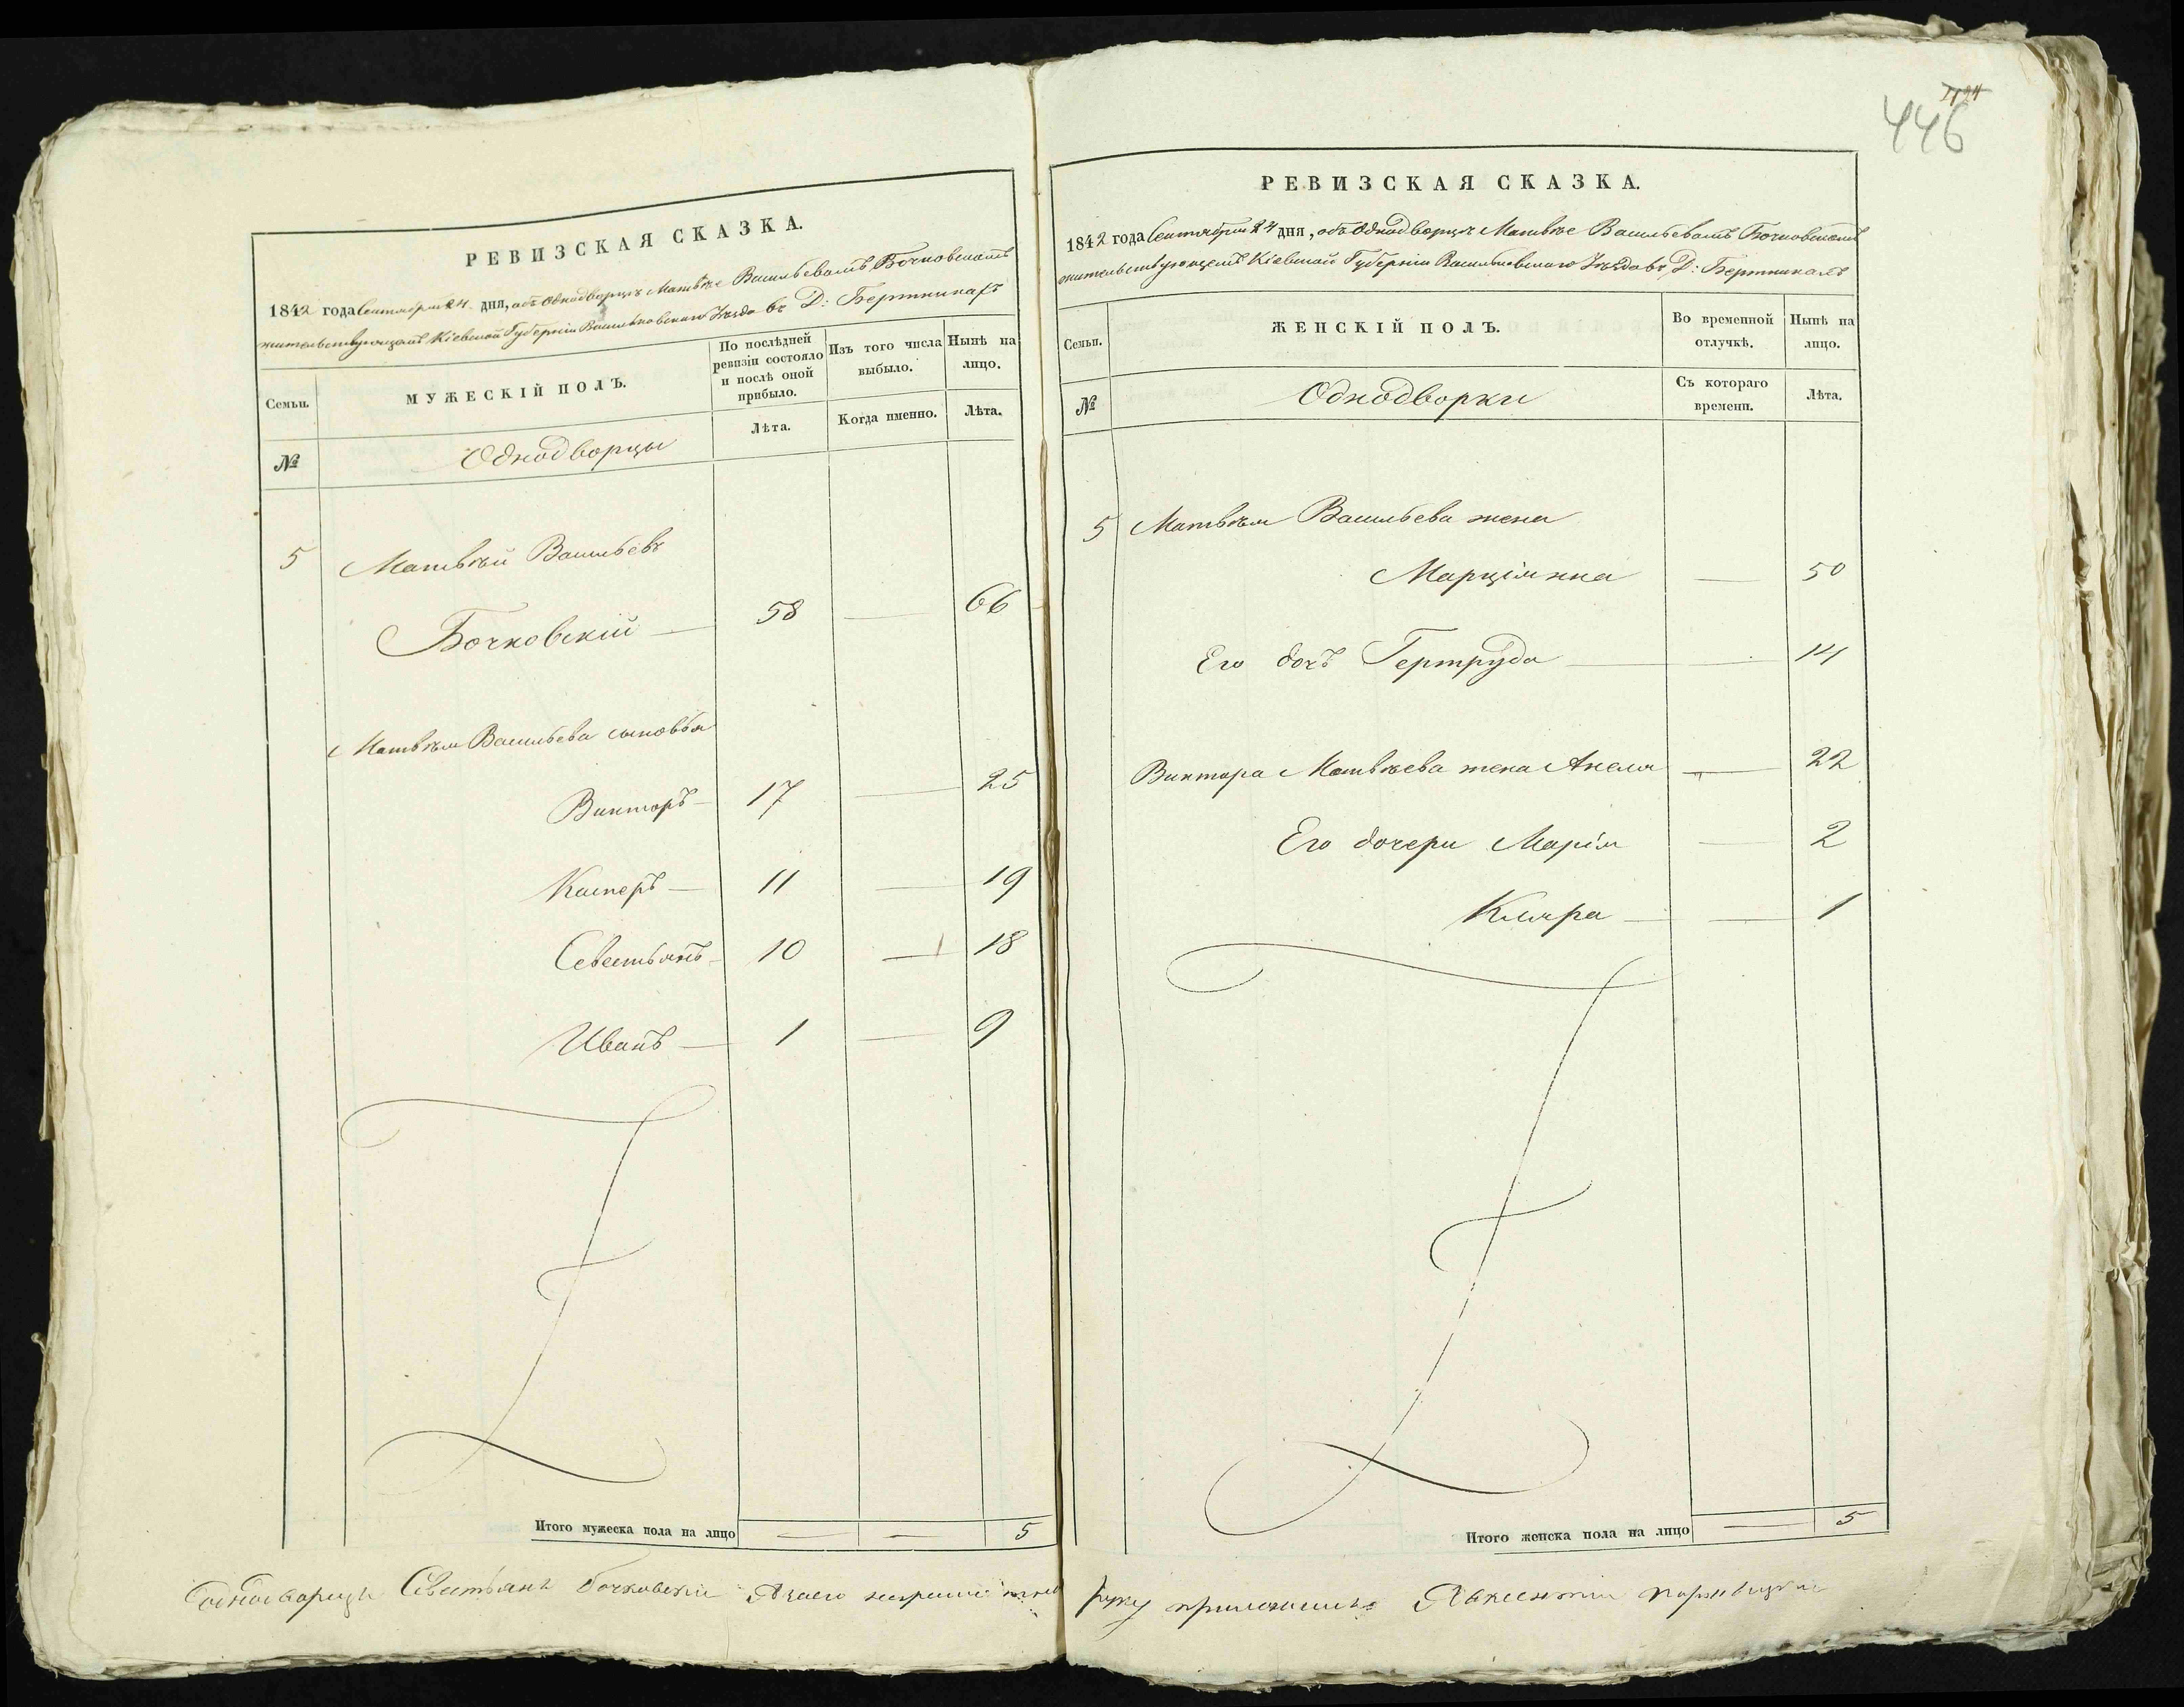 РЕВИЗСКАЯ СКАЗКА.
1842 года Сентября 24 дня, объ Однодворцѣ Матвѣе Васильевомъ Бочковскомъ
жительствующемъ Кіевской Губерніи Васильковскаго Уѣзда въ Д: Бертникахъ
Семьи. МУЖЕСКІЙ ПОЛЪ. По послѣдней ревизіи состояло и послѣ оной прибыло. Изъ того числа выбыло. Нынѣ на лицо.
№ Однодворцы Лѣта. Когда именно. Лѣта.
5 Матвѣй Васильевъ
Бочковскій — 58 — 66
Матвѣя Васильева сыновья
Викторъ — 17 — 25
Касперъ — 11 — 19
Севестьянъ — 10 — 18
Иванъ — 1 — 9
Итого мужеска пола на лицо — — 5
446
РЕВИЗСКАЯ СКАЗКА.
1842 года Сентября 24 дня, объ Однодворцѣ Матвѣе Васильевомъ Бочковскомъ
жительствующемъ Кіевской Губерніи Васильковскаго Уѣзда въ Д: Бертникахъ
Семьи. ЖЕНСКІЙ ПОЛЪ. Во временной отлучкѣ. Нынѣ на лицо.
№ Однодворки Съ котораго времени. Лѣта.
5 Матвѣя Васильева жена
Марціянна — 50
Его дочъ Гертруда — — 14
Виктора Матвѣева жена Анеля — 22
Его дочери Марія — 2
Кляра — — 1
Итого женска пола на лицо — 5
однодворецъ Севестьянъ Бочковскій руку приложилъ